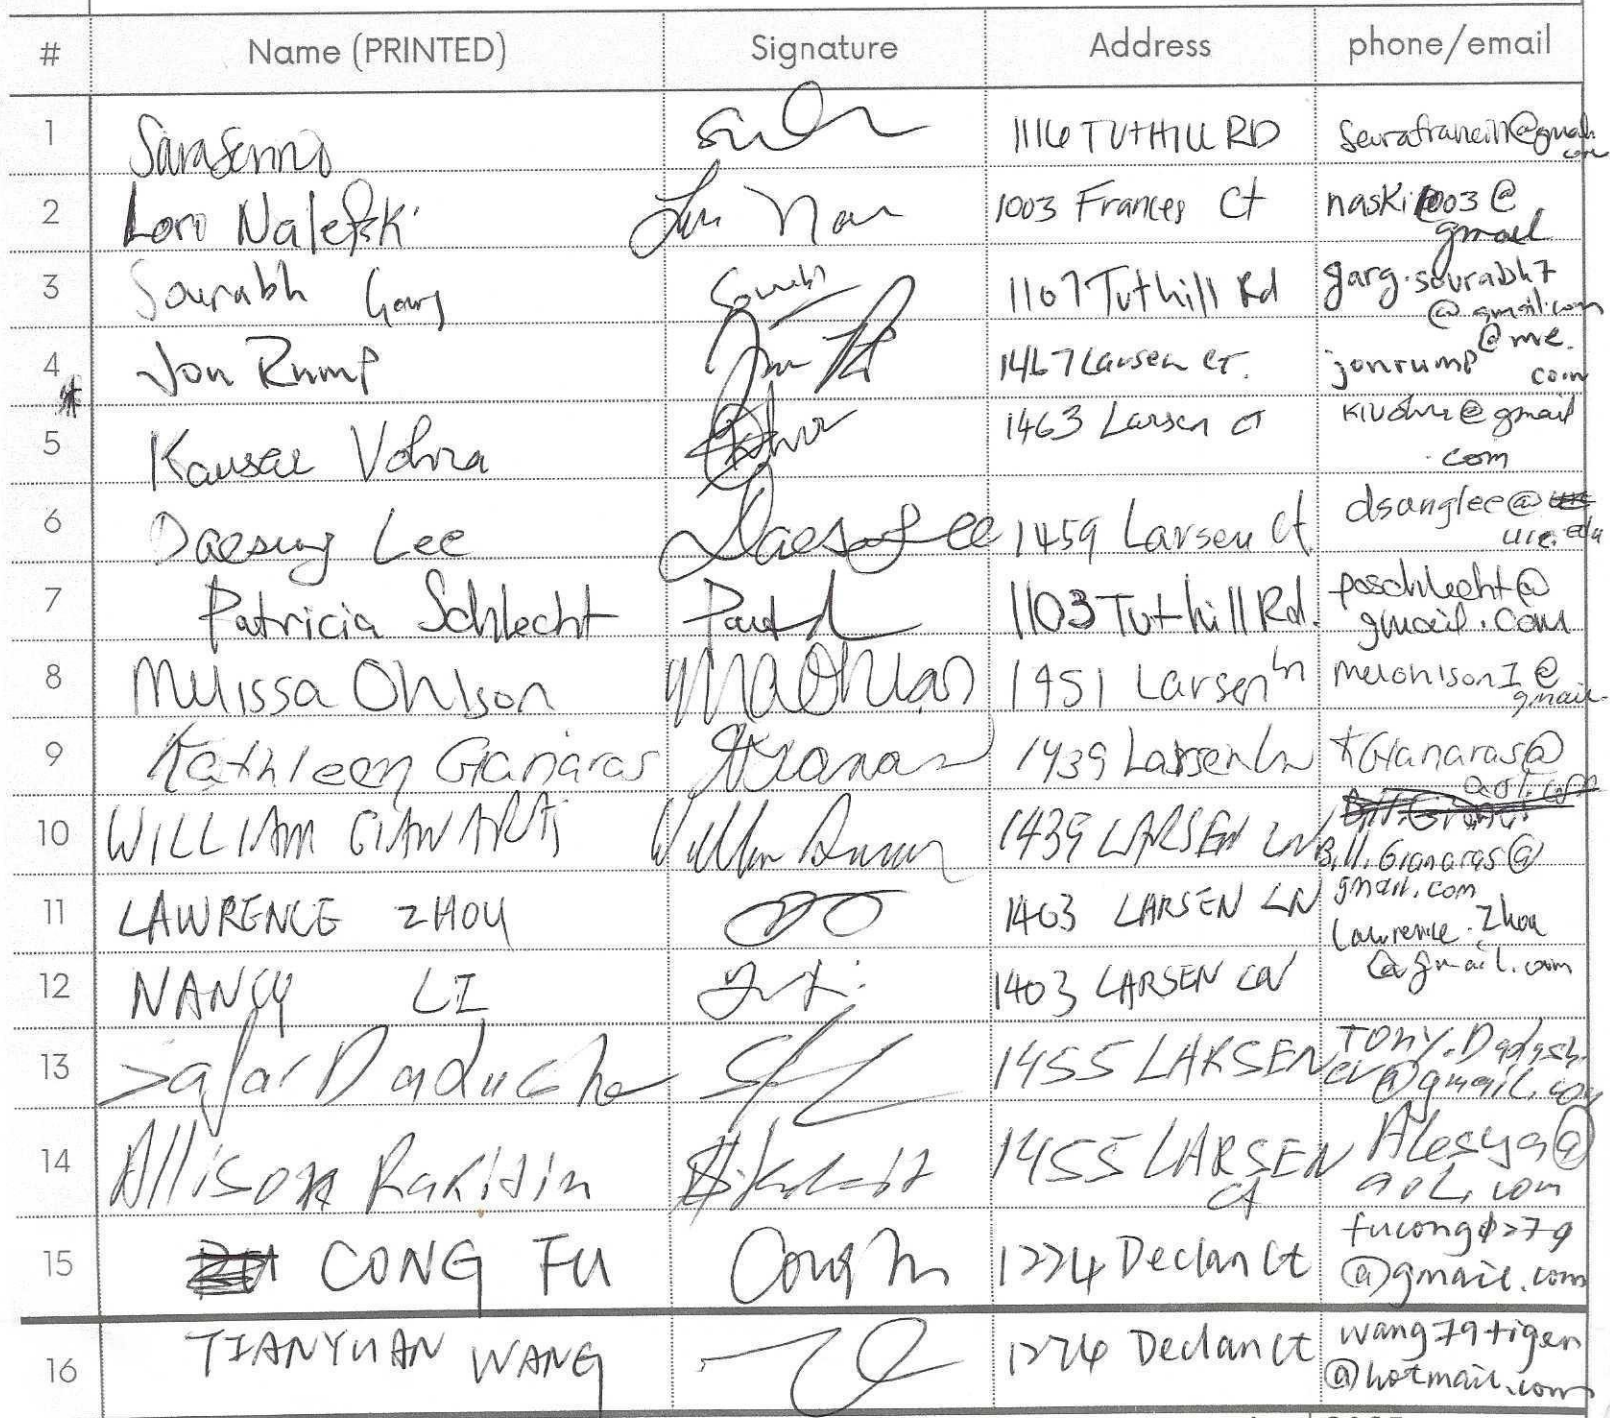 # Name (PRINTED) Signature Address phone/email
1 1116 TUTHILL RD
2 Lori Nalefski 1003 Frances Ct naski1003@
gmail
3 Sourabh Garg Sourabh 1107 Tuthill Rd garg.sourabh7
@gmail.com
4 Jon Rump 1467 Larsen CT. jonrump
@me.
com
5 Kausar Vohra 1463 Larsen CT kivohra@gmail
.com
6 Daesung Lee Daesung Lee 1459 Larsen Ct dsanglee@
uic.edu
7 Patricia Schlecht 1103 Tuthill Rd. paschlecht@
gmail.com
8 Melissa Ohlson 1451 Larsen Ln melohlson1@
gmail.
9 Kathleen Gianaras 1439 Larsen Ln KGianaras@
aol.com
10 WILLIAM GIANARAS 1439 LARSEN LN Bill.Gianaras@
gmail.com
11 LAWRENCE ZHOU 1403 LARSEN LN Lawrence.Zhou
@gmail.com
12 NANCY LI 1403 LARSEN LN
13 1455 LARSEN
@gmail.com
14 Allison Rakitin 1455 LARSEN Alesya@
Ct aol.com
15 CONG FU Cong Fu 1274 Declan Ct fucong0279
@gmail.com
16 TIANYUAN WANG 1274 Declan Ct wang79tiger
@hotmail.com